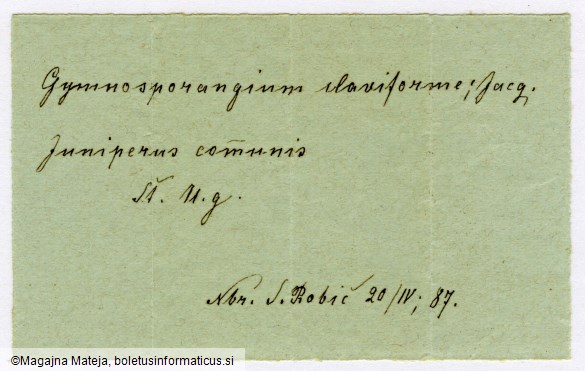 Gymnosporangium claviforme; Jacq.
Juniperus com̅unis
Št. U.g.
Nbr. S. Robič 20/IV; 87.
©Magajna Mateja, boletusinformaticus.si